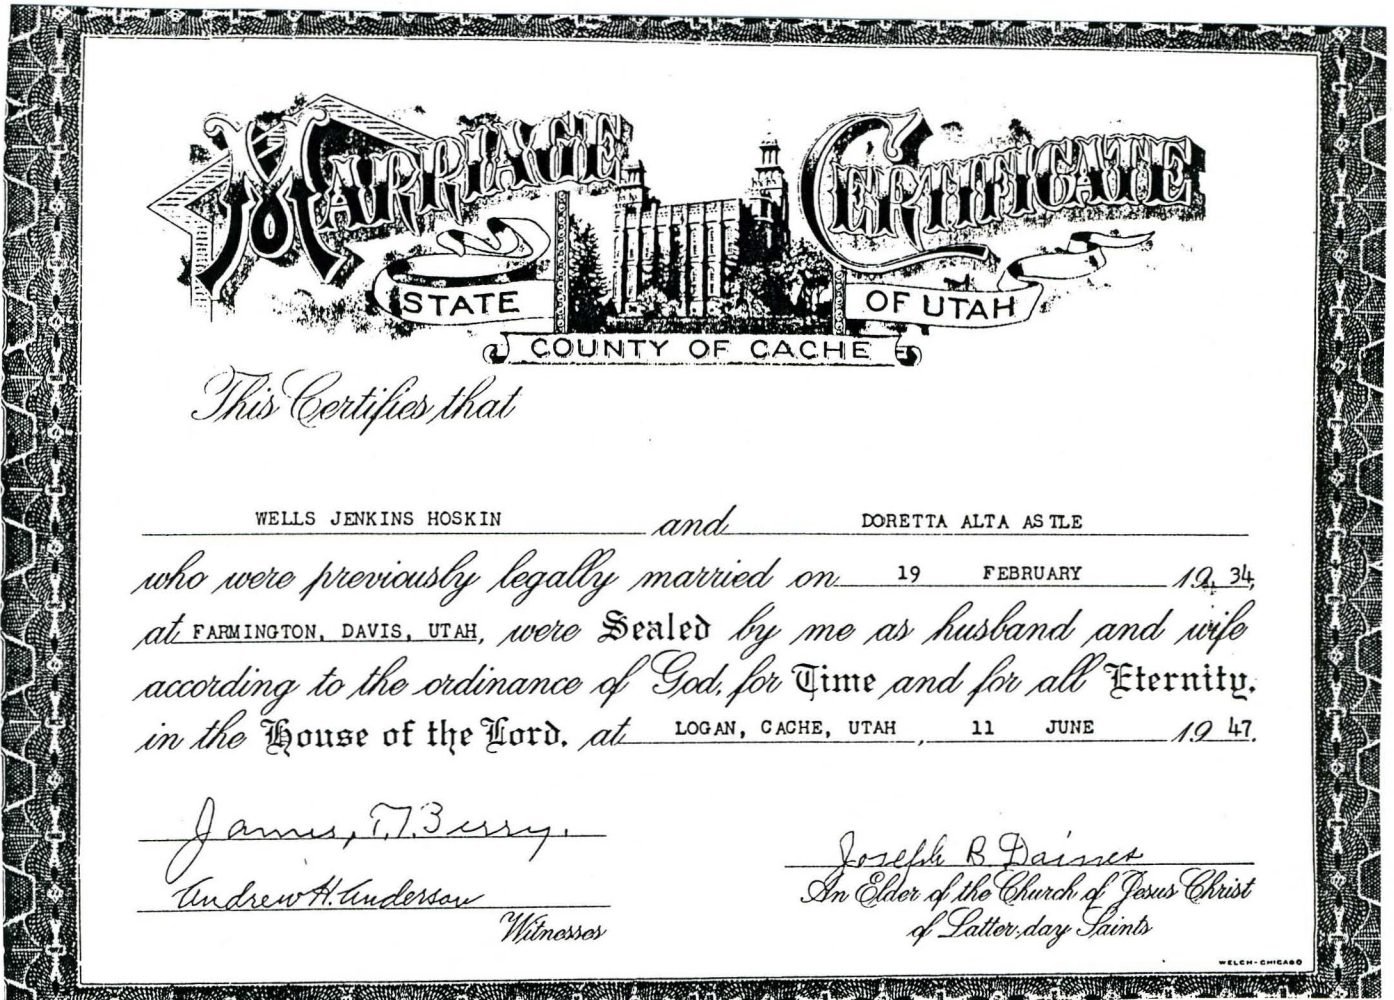 MARRIAGE CERTIFICATE
STATE OF UTAH
COUNTY OF CACHE
This Certifies that
WELLS JENKINS HOSKIN and DORETTA ALTA ASTLE
who were previously legally married on 19 FEBRUARY 19 34,
at FARMINGTON, DAVIS, UTAH, were Sealed by me as husband and wife
according to the ordinance of God, for Time and for all Eternity,
in the House of the Lord, at LOGAN, CACHE, UTAH, 11 JUNE 19 47.
James, T. Berry.
Joseph B Daines
Andrew H. Anderson
An Elder of the Church of Jesus Christ
Witnesses
of Latter-day Saints
WELCH-CHICAGO